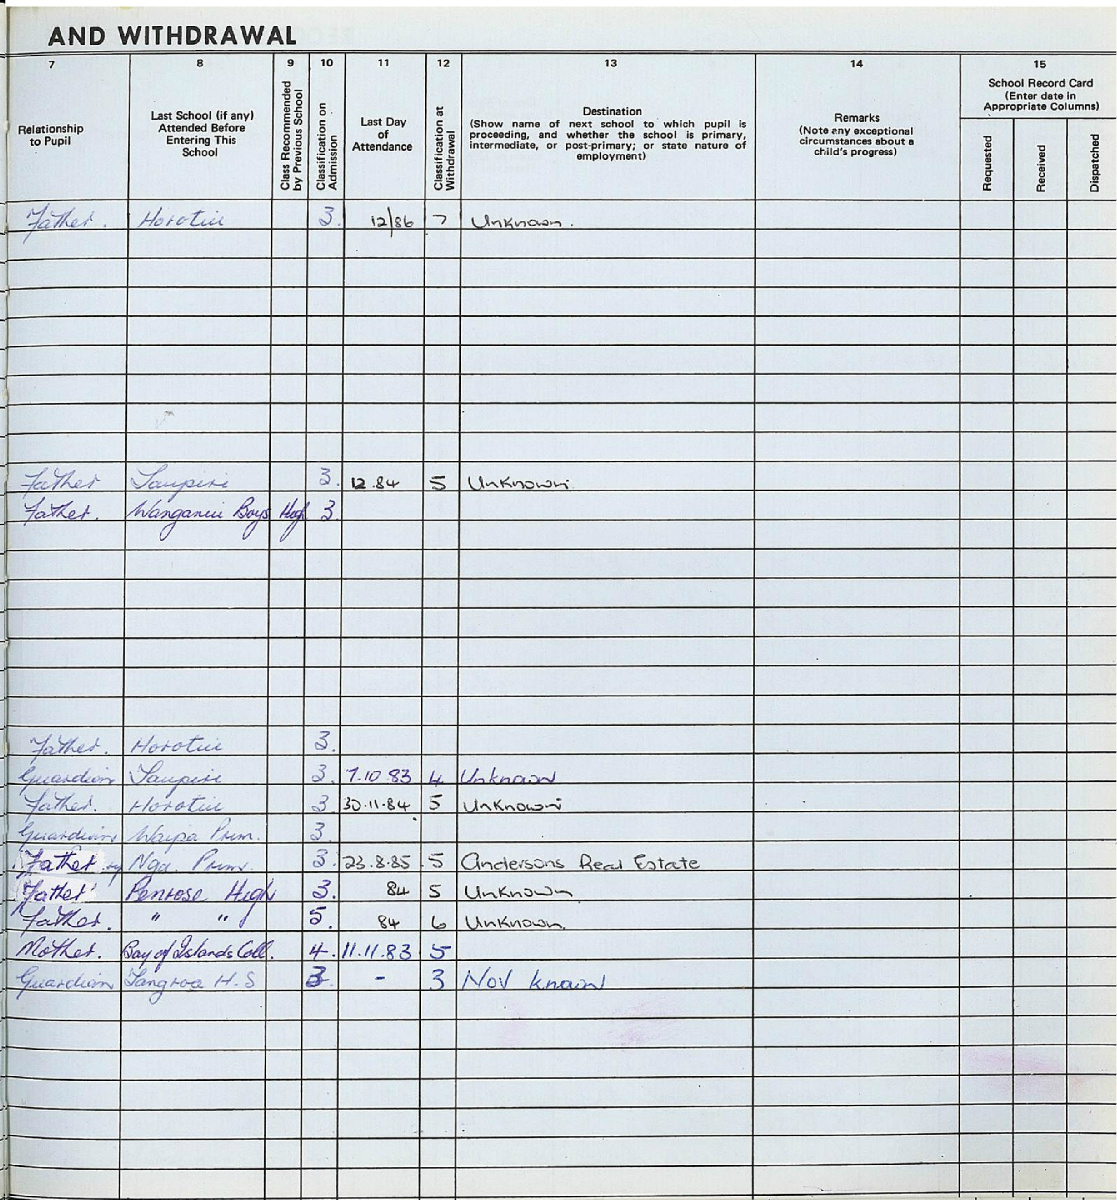 AND WITHDRAWAL
7 8 9 10 11 12 13 14 15
Relationship to Pupil
Last School (if any) Attended Before Entering This School
Class Recommended by Previous School
Classification on Admission
Last Day of Attendance
Classification at Withdrawal
Destination
(Show name of next school to which pupil is proceeding, and whether the school is primary, intermediate, or post-primary; or state nature of employment)
Remarks
(Note any exceptional circumstances about a child's progress)
School Record Card
(Enter date in Appropriate Columns)
Requested Received Dispatched
Father. Horotiu 3. 12/86 7 Unknown.
Father Taupiri 3. 12.84 5 Unknown.
Father. Wanganui Boys High 3.
Father. Horotiu 3.
Guardian Taupiri 3. 7.10.83 4 Unknown
Father. Horotiu 3 30.11.84 5 Unknown
Guardian Waipa Prim. 3
Father Nga. Prim. 3. 23.8.85 5 Andersons Real Estate
Father Penrose High 3. 84 5 Unknown
Father. " " 5. 84 6 Unknown.
Mother. Bay of Islands Coll. 4. 11.11.83 5
Guardian Tangroa H.S 3. - 3 Not known